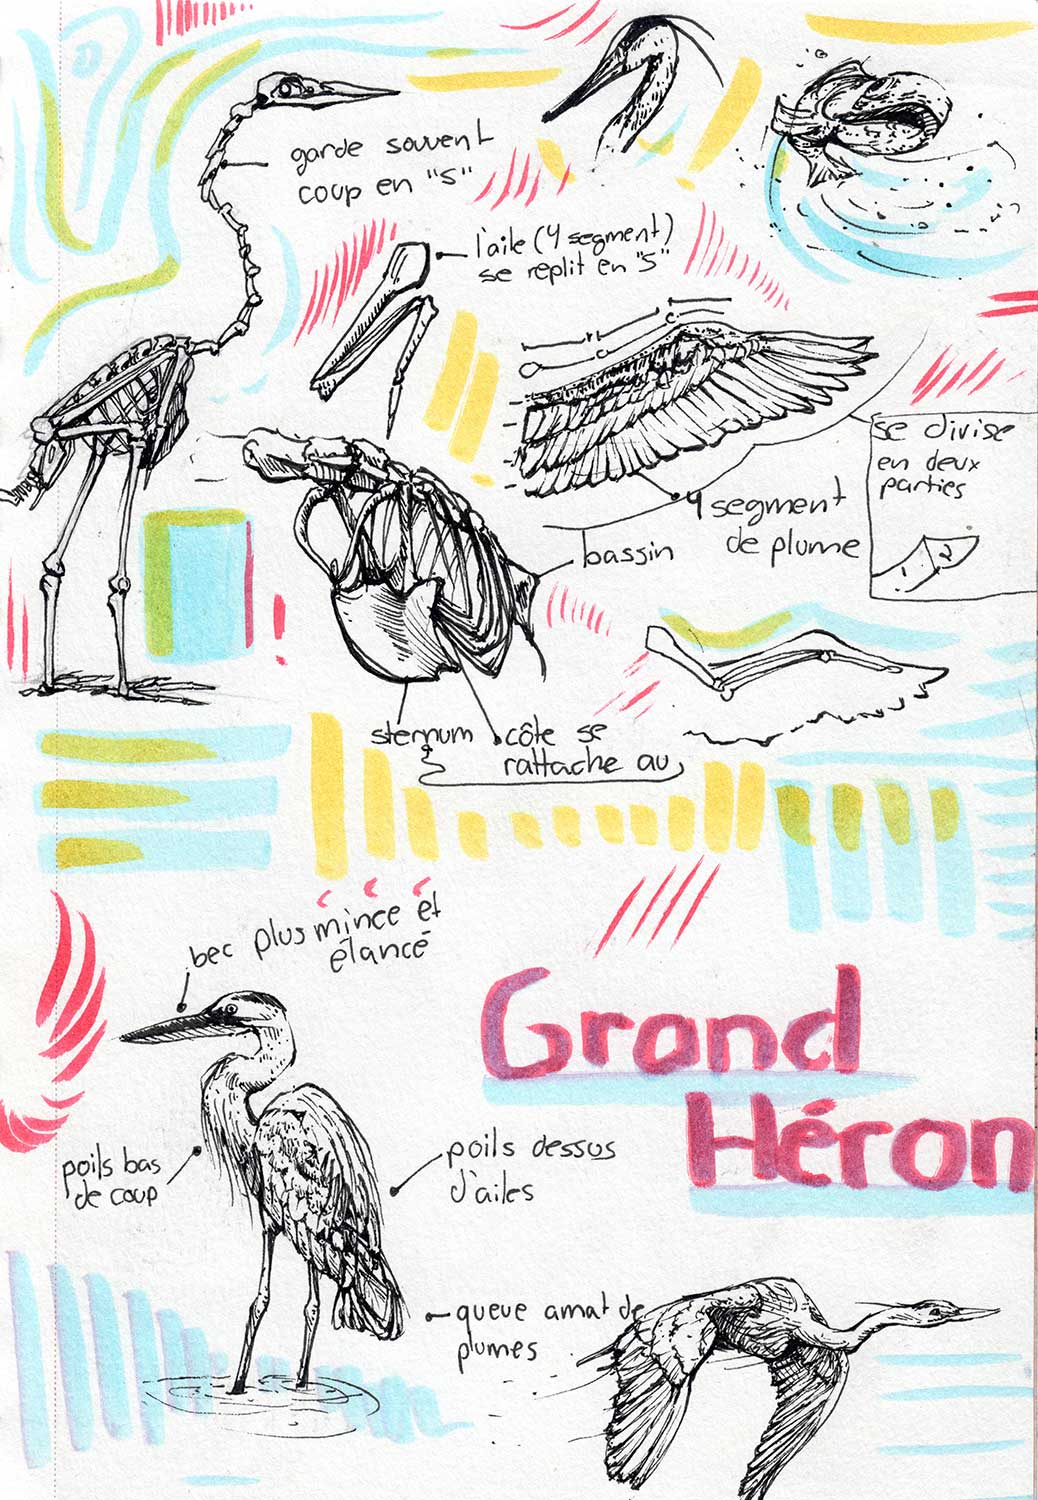 garde souvent
coup en "S"
l'aile (4 segment)
se replit en "S"
se divise
en deux
parties
1 2
4 segment
de plume
bassin
sternum
côte se
rattache au
bec plus mince et
élancé
Grand
Héron
poils bas
de coup
poils dessus
d'ailes
queue amat de
plumes